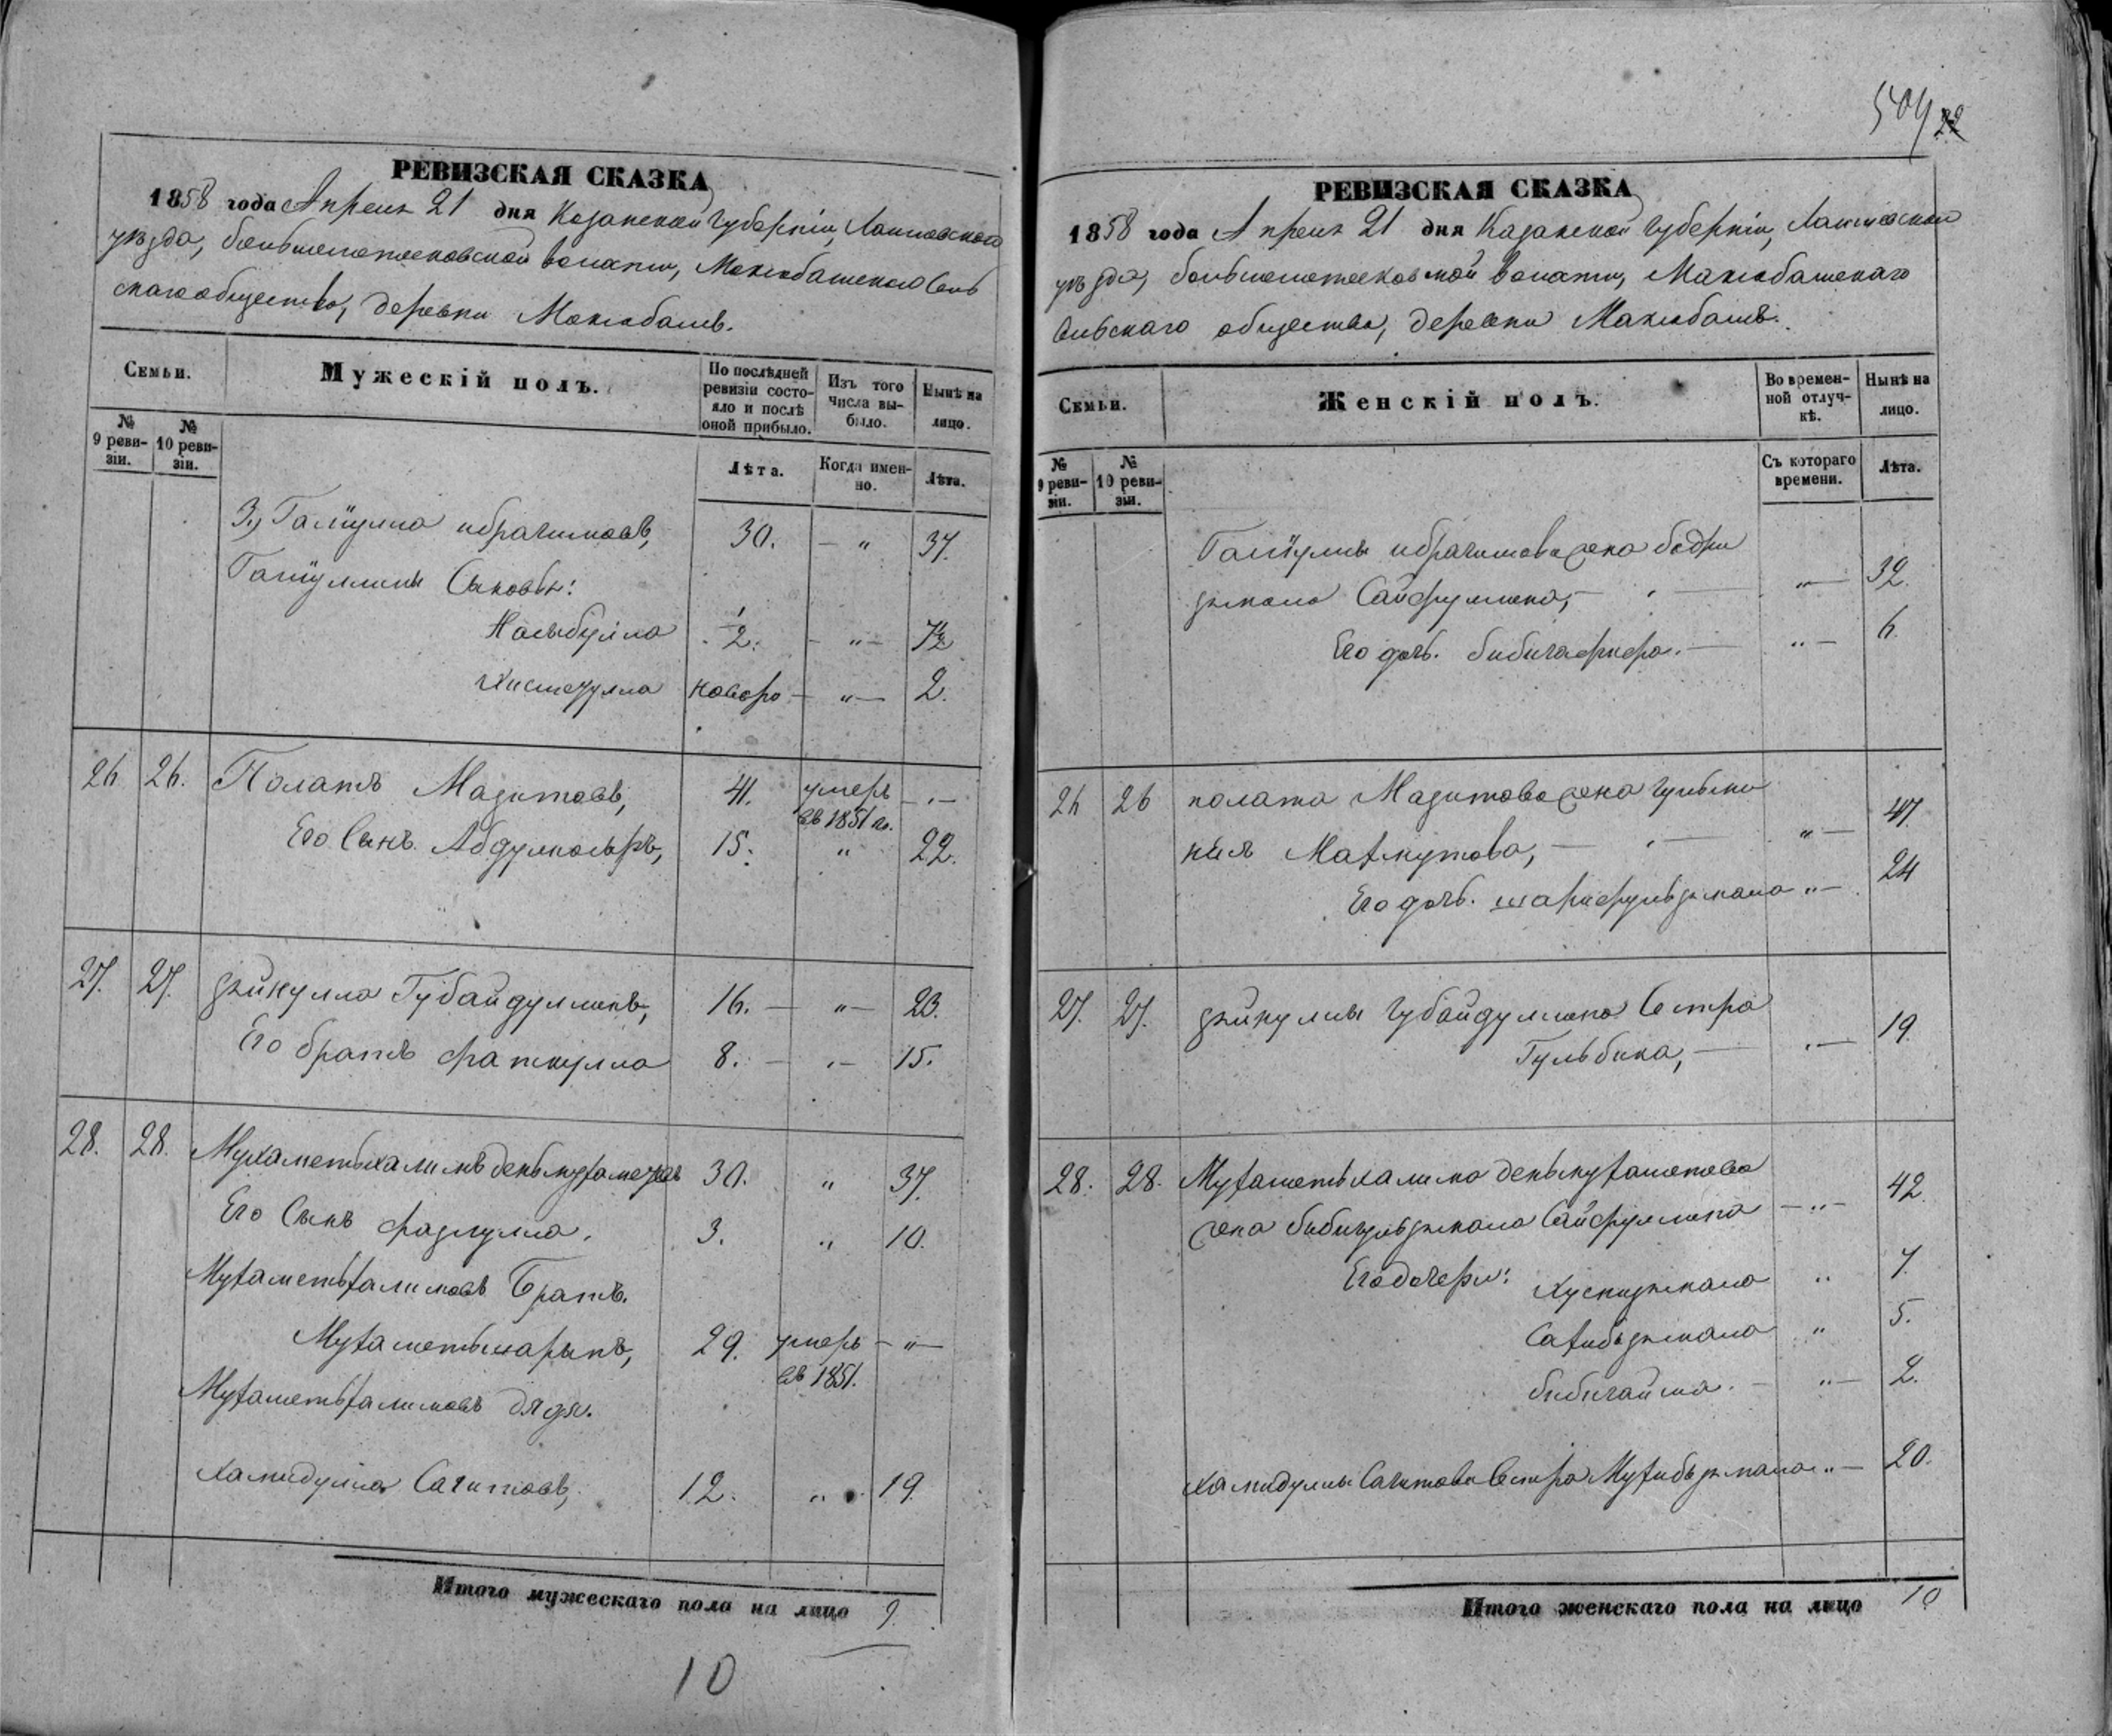 РЕВИЗСКАЯ СКАЗКА
1858 года Апреля 21 дня Казанской губерніи, Лаишевскаго
уѣзда, волости,
скаго общества, деревни Маклобашъ.
Семьи.
Мужескій полъ.
По послѣдней ревизіи состояло и послѣ оной прибыло.
Изъ того числа выбыло.
Нынѣ на лицо.
№ 9 ревизіи.
№ 10 ревизіи.
Лѣта.
Когда именно.
Лѣта.
3., Галиулла ибрагимовъ, 30. — „ 37.
Галиуллины Сыновья:
1/2. — „ — 7 1/2
новоро — „ — 2.
26 26. Полатъ Мазитовъ, 41. умеръ въ 1851 го. — „ —
Его Сынъ Абдулкасыръ, 15. „ 22.
27. 27. зяйнулла Губайдуллинъ, 16. — „ — 23.
Его братъ фаткулла 8. — „ — 15.
28. 28. 30. „ 37.
Его Сынъ фазлулла. 3. „ 10.
Мухаметьхалимовъ Братъ.
Мухаметьшарыпъ, 29. умеръ въ 1851. — „ —
Мухаметьхалимовъ дядя.
Хамидулла Сагитовъ, 12. „ 19.
Итого мужескаго пола на лицо 9.
10
504 22
РЕВИЗСКАЯ СКАЗКА
1858 года Апреля 21 дня Казанской губерніи, Лаишевскаго
уѣзда, волости,
Сельскаго общества, деревни Маклобашъ.
Семьи.
Женскій полъ.
Во временной отлучкѣ.
Нынѣ на лицо.
№ 9 ревизіи.
№ 10 ревизіи.
Съ котораго времени.
Лѣта.
Галиуллы ибрагимова жена бадри
зямала Сайфуллина, — „ — 32.
Его дочь. бибигафифа. — „ — 6.
26 26 полата Мазитова жена
Махмутова, — „ — 47.
Его дочь. шарифульзямала „ — 24
27. 27. зяйнуллы губайдуллина Сестра
Гульбика, — „ — 19.
28. 28. Мухаметьхалима
жена бибигульзямала Сайфуллина — „ — 42.
Его дочери: Хуснизямала „ 7.
Сахибьзямала „ 5.
бибигайша. — „ — 2.
Хамидуллы Сагитова Сестра Мухибьзямала „ — 20.
Итого женскаго пола на лицо 10